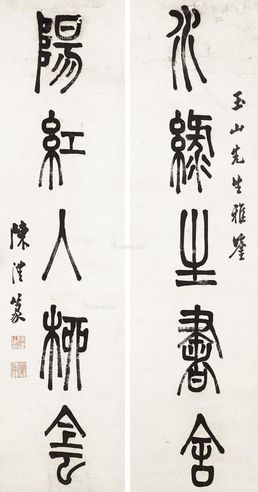 玉山先生雅鑒
水綠書舍
陽紅人柳
陳澧篆